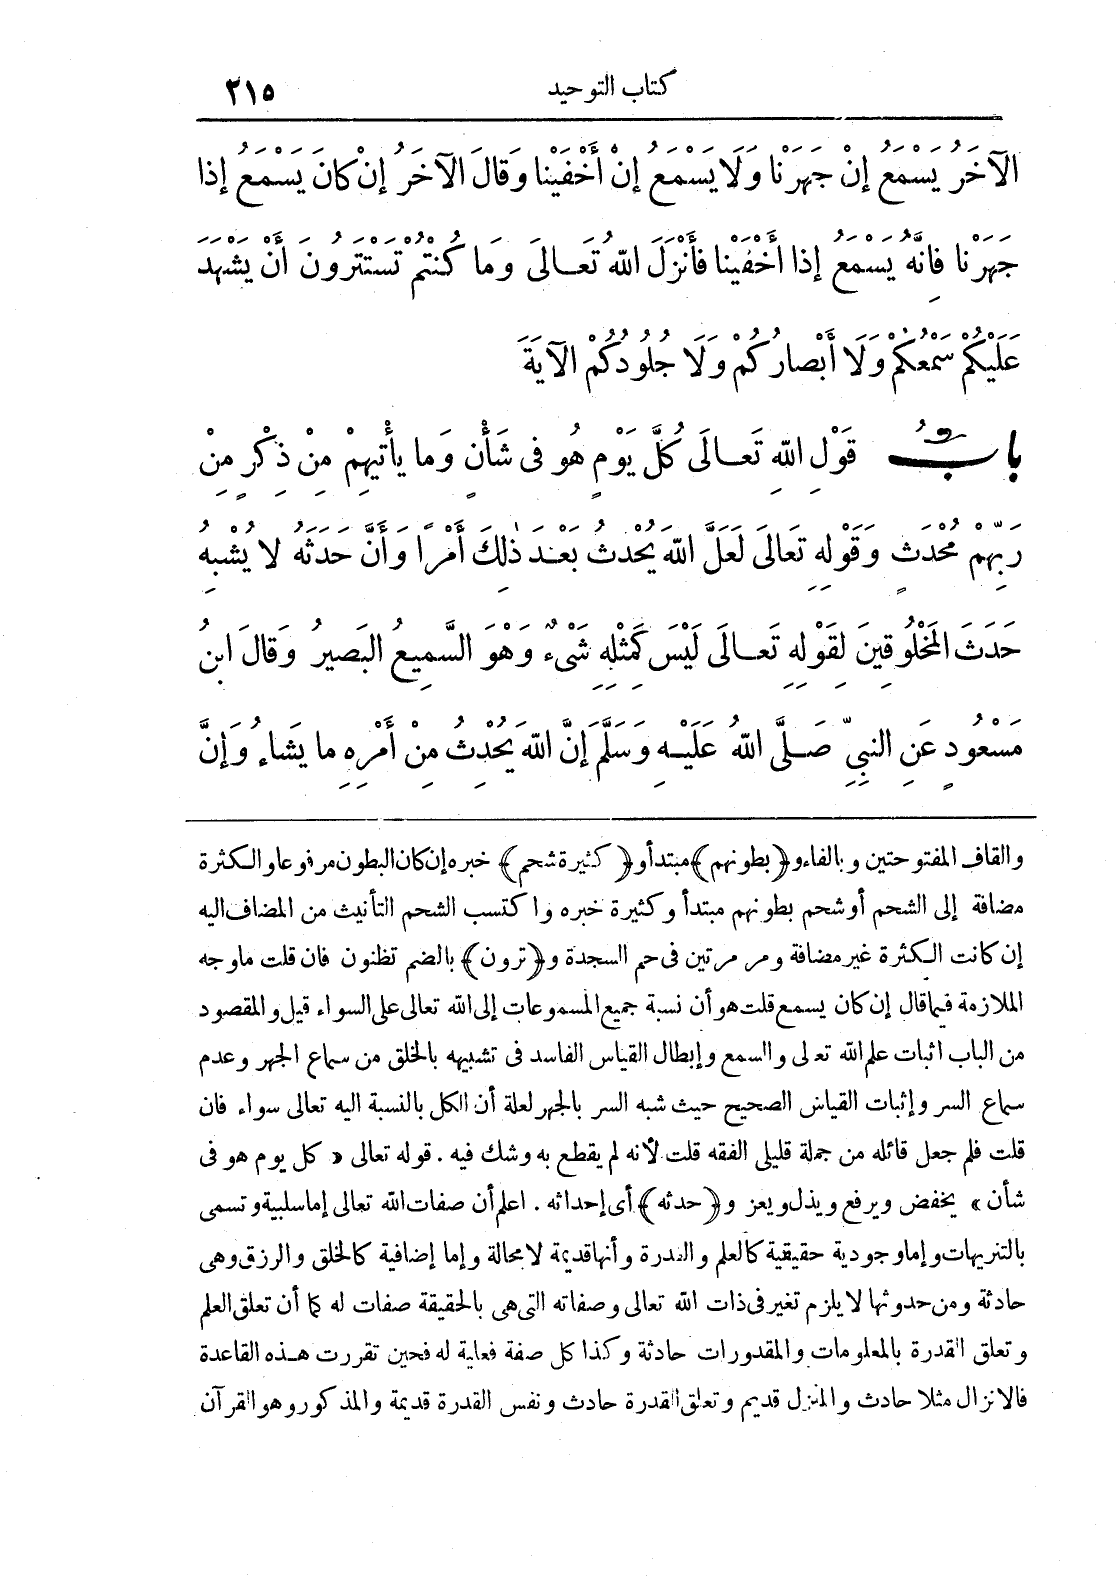 كتاب التوحيد ٢١٥
الآخَرُ يَسْمَعُ إِنْ جَهَرْنَا وَلَا يَسْمَعُ إِنْ أَخْفَيْنَا وَقَالَ الآخَرُ إِنْ كَانَ يَسْمَعُ إِذا
جَهَرْنَا فَإِنَّهُ يَسْمَعُ إِذا أَخْفَيْنَا فَأَنْزَلَ اللهُ تَعَالَى وَمَا كُنْتُمْ تَسْتَتِرُونَ أَنْ يَشْهَدَ
عَلَيْكُمْ سَمْعُكُمْ وَلَا أَبْصَارُكُمْ وَلَا جُلُودُكُمْ الآيَةَ
بابُ قَوْلِ اللهِ تَعَالَى كُلَّ يَوْمٍ هُوَ فى شَأْنٍ وَما يأْتِيهِمْ مِنْ ذِكْرٍ مِنْ
رَبِّهِمْ مُحْدَثٍ وَقَوْلِهِ تَعَالَى لَعَلَّ اللهَ يُحْدِثُ بَعْدَ ذٰلِكَ أَمْرًا وَأَنَّ حَدَثَهُ لا يُشْبِهُ
حَدَثَ المَخْلُوقِينَ لِقَوْلِهِ تَعَالَى لَيْسَ كَمِثْلِهِ شَىْءٌ وَهْوَ السَّمِيعُ البَصِيرُ وَقَالَ ابنُ
مَسْعُودٍ عَنِ النبىِّ صَلَّى اللهُ عَلَيْهِ وَسَلَّمَ إِنَّ اللهَ يُحْدِثُ مِنْ أَمْرِهِ ما يَشَاءُ وَإِنَّ
والقاف المفتوحتين وبالفاء و﴿بطونهم﴾ مبتدأ و﴿كثيرة شحم﴾ خبره إن كان البطون مرفوعا والكثرة
مضافة إلى الشحم أو شحم بطونهم مبتدأ وكثيرة خبره واكتسب الشحم التأنيث من المضاف اليه
إن كانت الكثرة غير مضافة ومر مرتين فى حم السجدة و﴿ترون﴾ بالضم تظنون فان قلت ما وجه
الملازمة فيما قال إن كان يسمع قلت هو أن نسبة جميع المسموعات إلى الله تعالى على السواء قيل والمقصود
من الباب اثبات علم الله تعالى والسمع وإبطال القياس الفاسد فى تشبيهه بالخلق من سماع الجهر وعدم
سماع السر وإثبات القياس الصحيح حيث شبه السر بالجهر لعلة أن الكل بالنسبة اليه تعالى سواء فان
قلت فلم جعل قائله من جملة قليلى الفقه قلت لأنه لم يقطع به وشك فيه . قوله تعالى « كل يوم هو فى
شأن » يخفض ويرفع ويذل ويعز و﴿حدثه﴾ أى إحداثه . اعلم أن صفات الله تعالى إما سلبية وتسمى
بالتنزيهات وإما وجودية حقيقية كالعلم والقدرة وأنها قديمة لا محالة وإما إضافية كالخلق والرزق وهى
حادثة ومن حدوثها لا يلزم تغير فى ذات الله تعالى وصفاته التى هى بالحقيقة صفات له كما أن تعلق العلم
وتعلق القدرة بالمعلومات والمقدورات حادثة وكذا كل صفة فعلية له فحين تقررت هذه القاعدة
فالانزال مثلا حادث والمنزل قديم وتعلق القدرة حادث ونفس القدرة قديمة والمذكور وهو القرآن